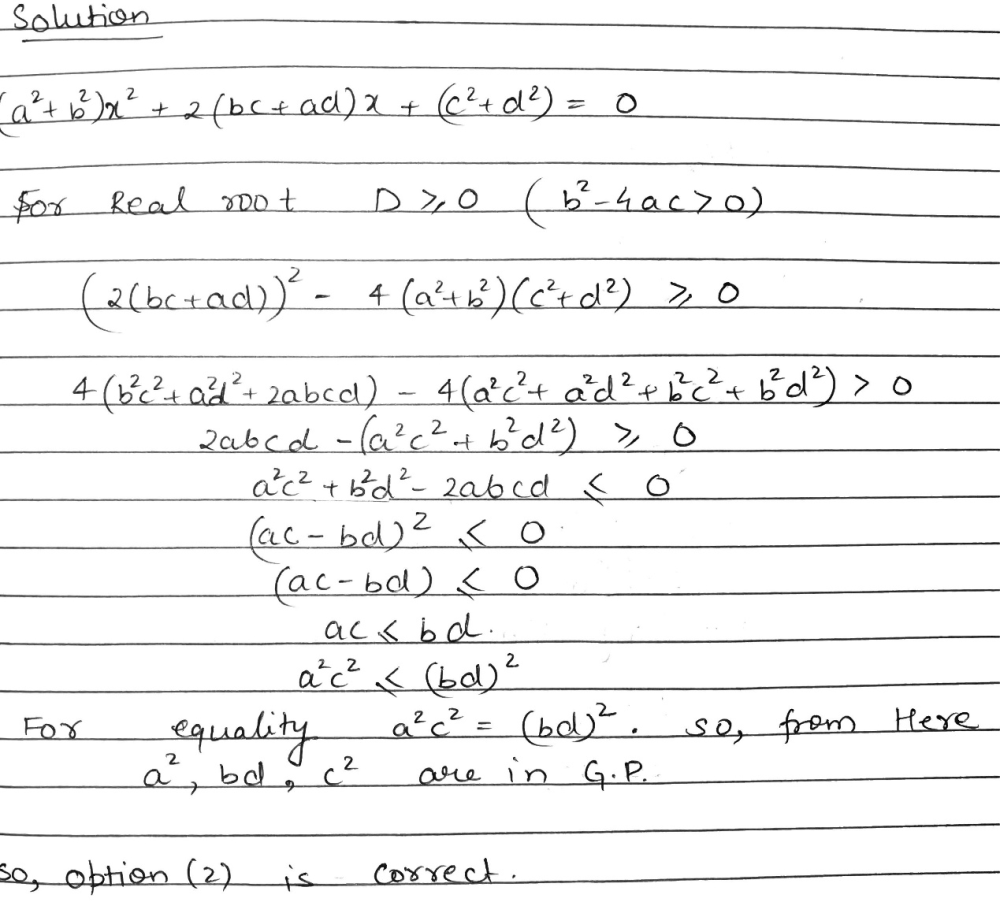 Solution
(a²+b²)x² + 2(bc+ad)x + (c²+d²) = 0
For Real root D ⩾ 0 (b²-4ac>0)
(2(bc+ad))² - 4(a²+b²)(c²+d²) ⩾ 0
4(b²c²+a²d²+2abcd) - 4(a²c²+a²d²+b²c²+b²d²) > 0
2abcd -(a²c²+b²d²) ⩾ 0
a²c²+b²d²-2abcd ⩽ 0
(ac-bd)² ⩽ 0
(ac-bd) ⩽ 0
ac ⩽ bd.
a²c² ⩽ (bd)²
For equality a²c² = (bd)². so, from Here
a², bd, c² are in G.P.
so, option (2) is correct.